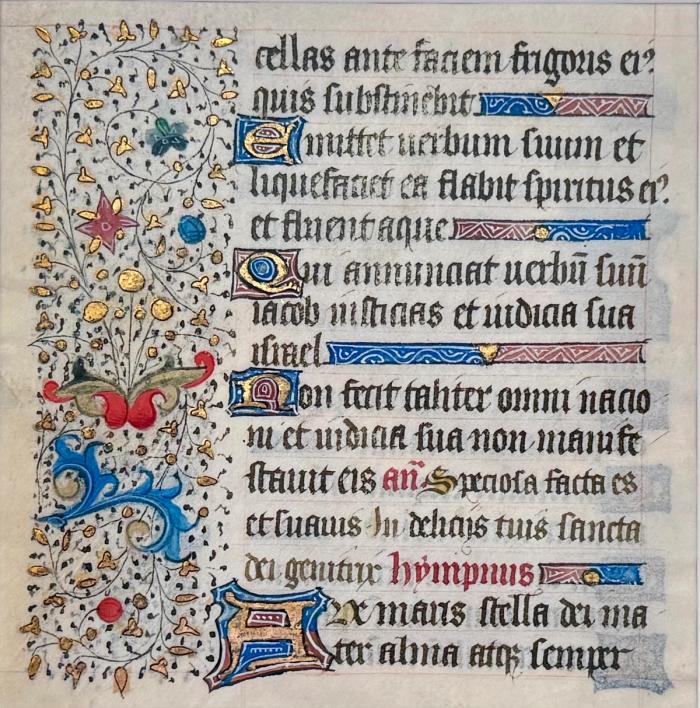 cellas ante faciem frigoris eiꝰ
quis substinebit
Emittet uerbum suum et
liquefaciet ea flabit spiritus eiꝰ
et fluent aque
Qui annunciat uerbū suū
iacob iusticias et iudicia sua
israel
Non fecit taliter omni nacio
ni et iudicia sua non manife
stauit eis añ Speciosa facta es
et suauis In delicijs tuis sancta
dei genitrix hympnus
Aue maris stella dei ma
ter alma atqꝫ semper